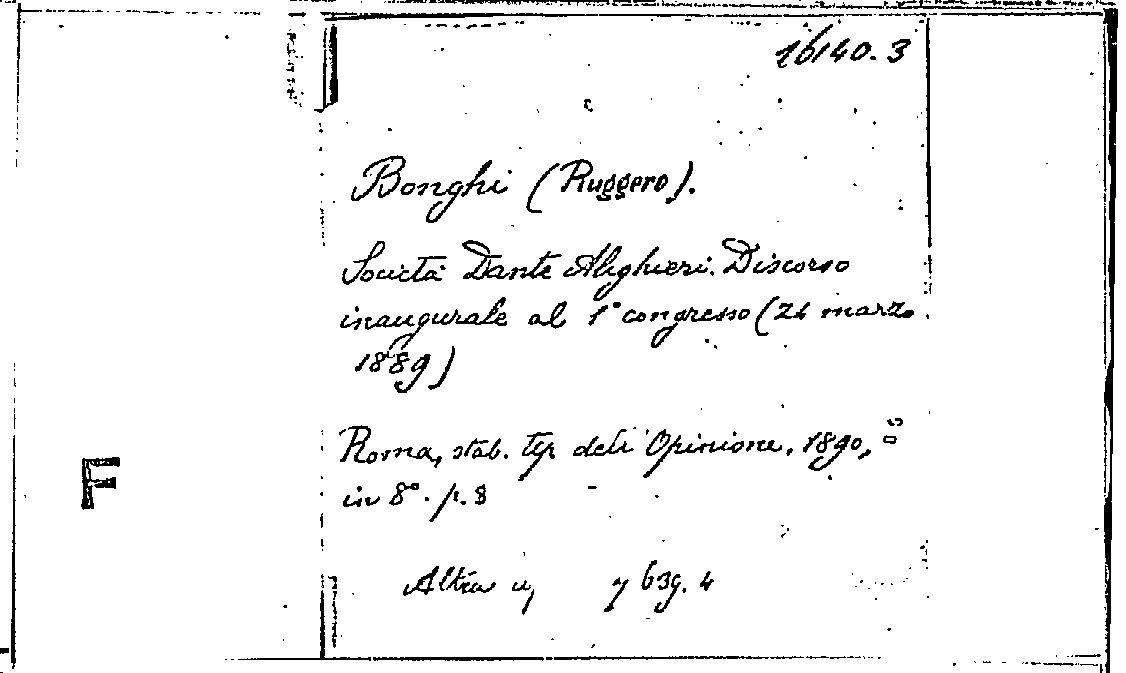 16140.3
Bonghi (Ruggero).
Società Dante Alighieri. Discorso
inaugurale al 1° congresso (24 marzo
1889)
Roma, stab. tip dell'Opinione, 1890,
in 8°. p. 8
F
Altra 7639.4